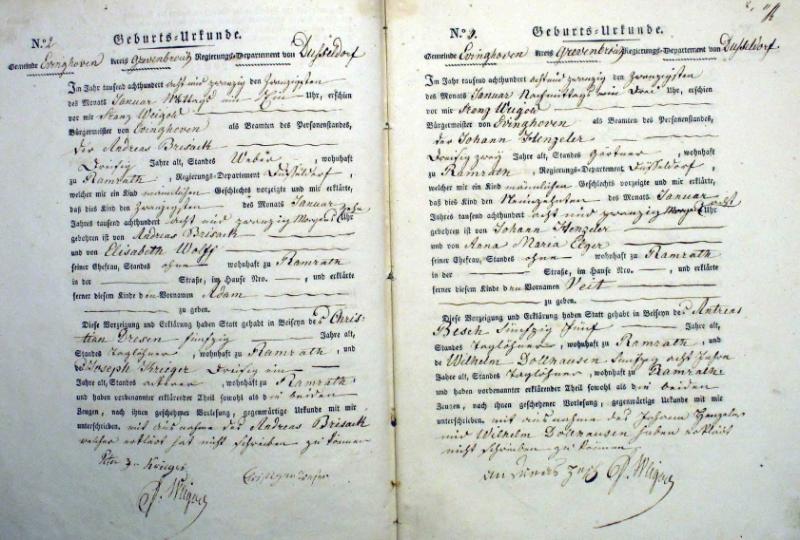 N.º 2
Geburts-Urkunde.
Gemeinde Evinghoven Kreis Grevenbroich Regierungs-Departement von Dusseldorf
Im Jahr tausend achthundert acht und zwanzig den zwanzigsten
des Monats Januar Mittags um Ein Uhr, erschien
vor mir Franz Weigon
Bürgermeister von Evinghoven als Beamten des Personenstandes,
der Andreas Brisack
Dreißig Jahre alt, Standes Weber, wohnhaft
zu Ramrath, Regierungs-Departement Düsseldorf,
welcher mir ein Kind männlichen Geschlechts vorzeigte und mir erklärte,
daß dies Kind den zwanzigsten des Monats Januar
Jahres tausend achthundert acht und zwanzig Morgens zehn Uhr
gebohren ist von Andreas Brisack
und von Elisabeth Wolff
seiner Ehefrau, Standes ohne wohnhaft zu Ramrath
in der Straße, im Hause Nro. , und erklärte
ferner diesem Kinde den Vornamen Adam
zu geben.
Diese Vorzeigung und Erklärung haben Statt gehabt in Beiseyn des Chris-
tian Dresen fünfzig Jahre alt,
Standes Taglöhner, wohnhaft zu Ramrath, und
des Joseph Krieger Dreißig ein
Jahre alt, Standes Ackerer, wohnhaft zu Ramrath
und haben vorbenannter erklärender Theil sowohl als die beiden
Zeugen, nach ihnen geschehener Vorlesung, gegenwärtige Urkunde mit mir
unterschrieben. mit ausnahme des Andreas Brisack
welcher erklärt hat nicht schreiben zu können
Krieger
N.º 3.
Geburts-Urkunde.
Gemeinde Evinghoven Kreis Grevenbroich Regierungs-Departement von Dusseldorf
Im Jahr tausend achthundert acht und zwanzig den zwanzigsten
des Monats Januar Nachmittags um Drei Uhr, erschien
vor mir Franz Weigon
Bürgermeister von Evinghoven als Beamten des Personenstandes,
der Johann Henzeler
Dreißig zwey Jahre alt, Standes Gärtner, wohnhaft
zu Ramrath, Regierungs-Departement Düsseldorf,
welcher mir ein Kind männlichen Geschlechts vorzeigte und mir erklärte,
daß dies Kind den Neunzehnten des Monats Januar
Jahres tausend achthundert acht und zwanzig Morgens acht Uhr
gebohren ist von Johann Henzeler
und von Anna Maria Esser
seiner Ehefrau, Standes ohne wohnhaft zu Ramrath
in der Straße, im Hause Nro. , und erklärte
ferner diesem Kinde den Vornamen Veit
zu geben.
Diese Vorzeigung und Erklärung haben Statt gehabt in Beiseyn des Andreas
Besch fünfzig fünf Jahre alt,
Standes Taglöhner, wohnhaft zu Ramrath, und
de Wilhelm Dollhausen fünfzig acht
Jahre alt, Standes Taglöhner, wohnhaft zu Ramrath
und haben vorbenannter erklärender Theil sowohl als die beiden
Zeugen, nach ihnen geschehener Vorlesung, gegenwärtige Urkunde mit mir
unterschrieben. mit ausnahme des Johann Henzeler
und Wilhelm Dollhausen haben erklärt
nicht schreiben zu können